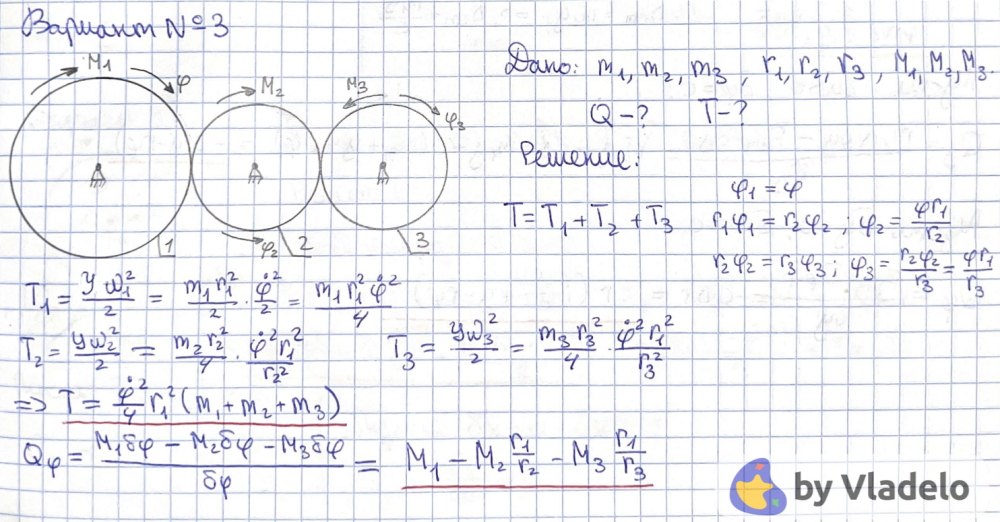 Вариант №3
M1 φ M2 M3 φ3
φ2 1 2 3
Дано: m1, m2, m3, r1, r2, r3, M1, M2, M3.
Q-? T-?
Решение:
φ1 = φ
T = T1 + T2 + T3 r1φ1 = r2φ2; φ2 = φr1/r2
r2φ2 = r3φ3; φ3 = r2φ2/r3 = φr1/r3
T1 = Yω1²/2 = m1r1²/2 · φ̇²/2 = m1r1²φ̇²/4
T2 = Yω2²/2 = m2r2²/4 · φ̇²r1²/r2² T3 = Yω3²/2 = m3r3²/4 · φ̇²r1²/r3²
=> T = φ̇²/4 r1²(m1 + m2 + m3)
Qφ = M1δφ - M2δφ - M3δφ/δφ = M1 - M2 r1/r2 - M3 r1/r3
by Vladelo